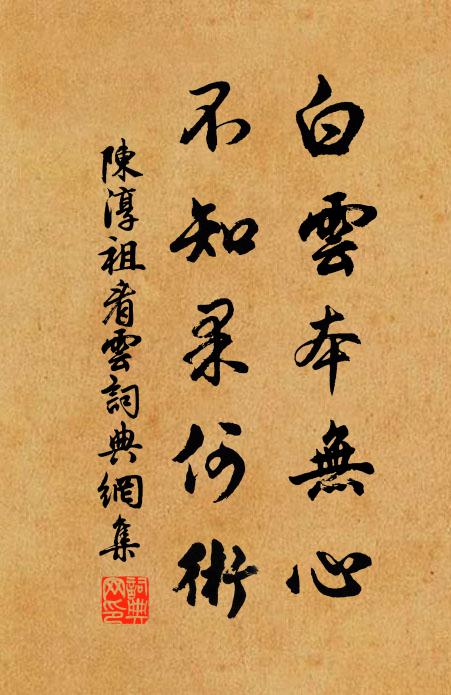 白雲本無心
不知果何術
陳淳祖看雲詞典網集
詞典網印